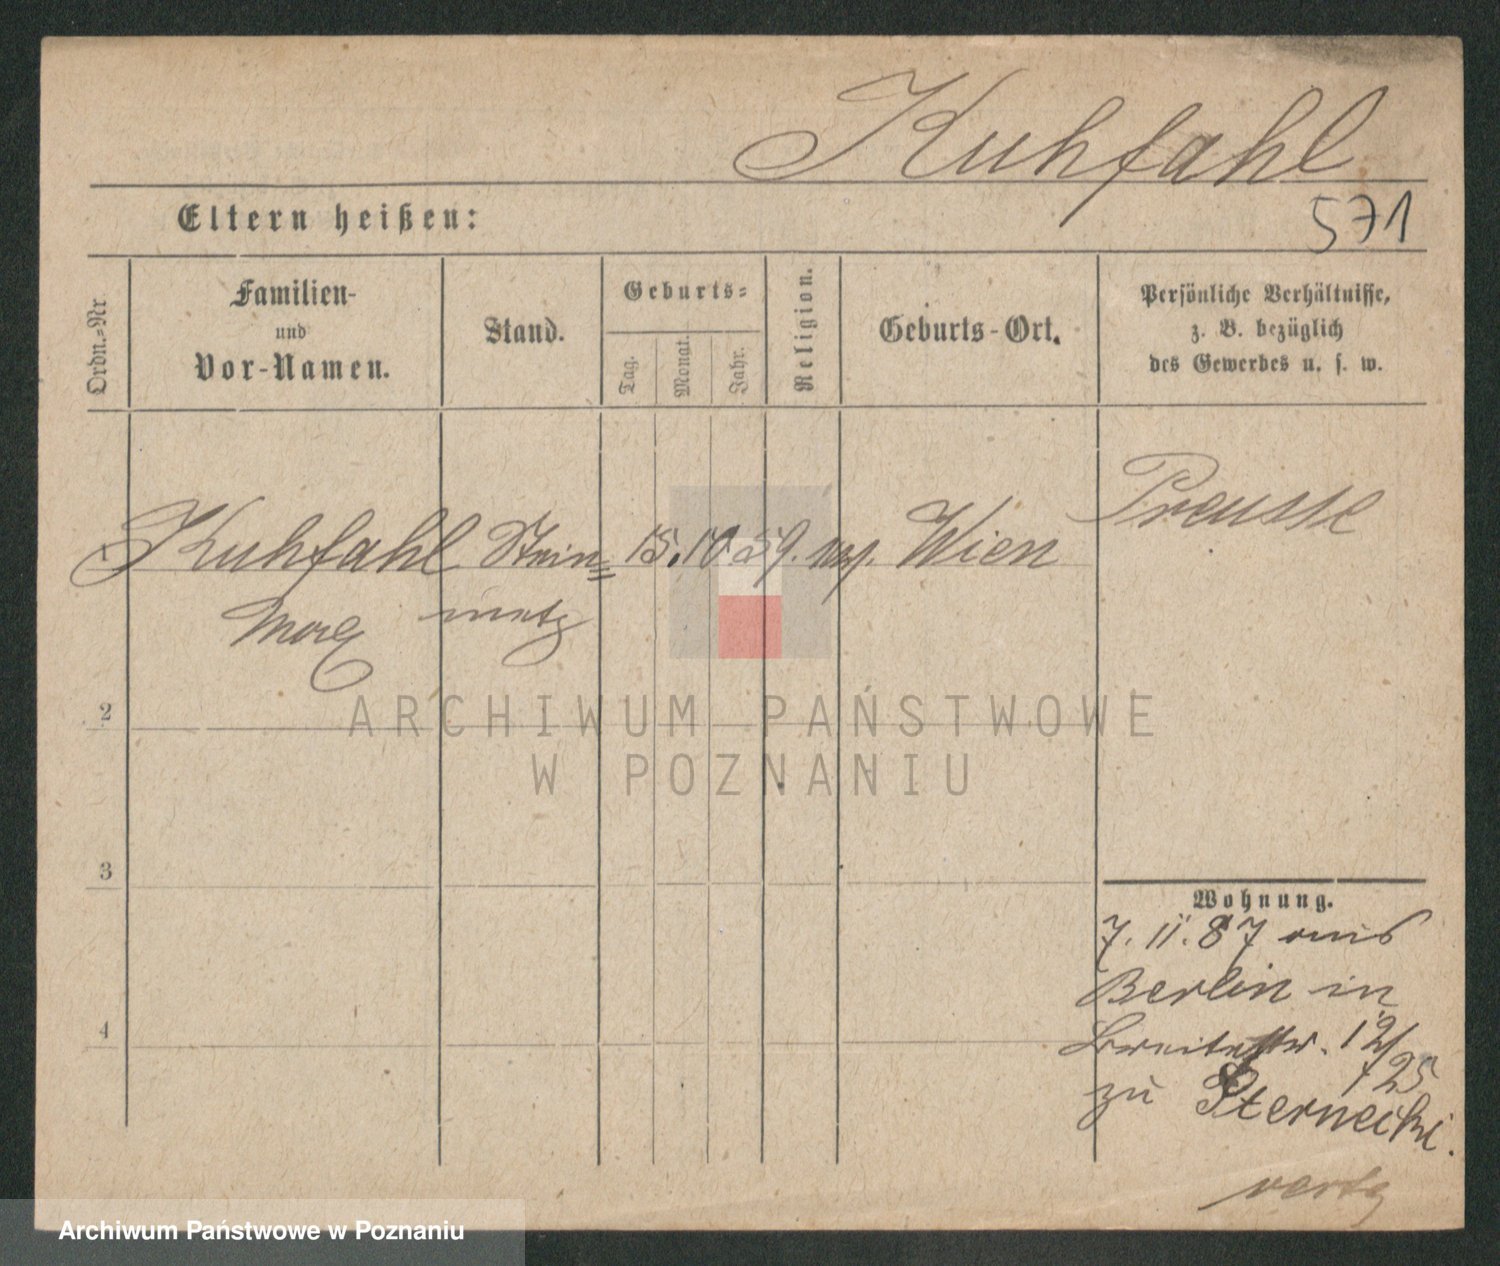 Kuhfahl
571
Eltern heißen:
Ordn.-Nr
Familien-
und
Vor-Namen.
Stand.
Geburts-
Tag.
Monat.
Jahr.
Religion.
Geburts-Ort.
Persönliche Verhältnisse,
z. B. bezüglich
des Gewerbes u. s. w.
Preusse
1 Kuhfahl Stein= 15. 10 59. Wien
Max metz
2
3
4
Wohnung.
7. 11. 87 aus
Berlin in
Breitestr. 12/
/25
zu
ARCHIWUM PAŃSTWOWE
W POZNANIU
Archiwum Państwowe w Poznaniu